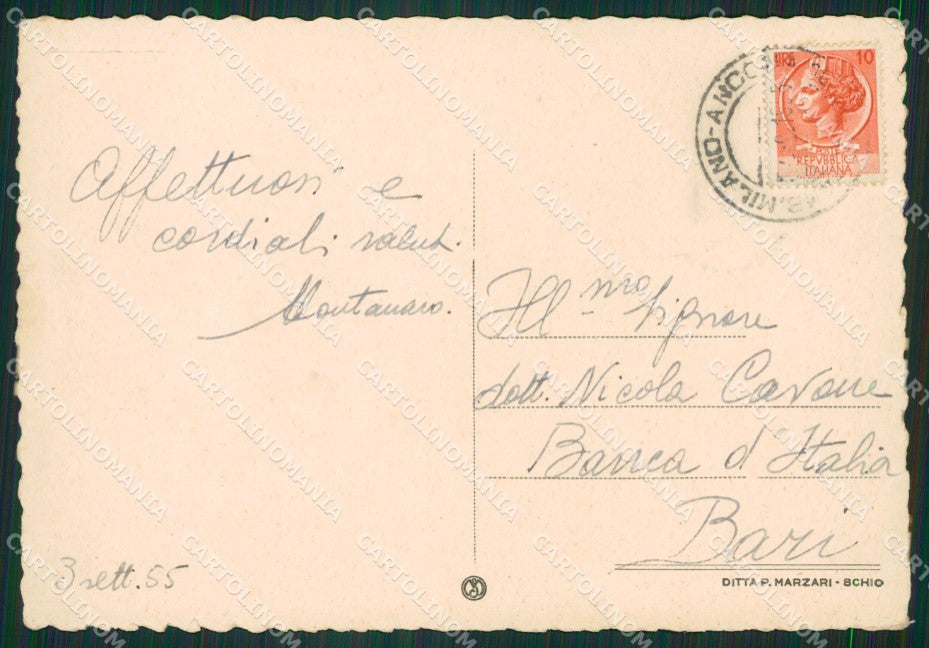 Affettuosi e
cordiali salut.
Montanaro.
3 sett. 55
LIRE 10
POSTE
REPVBBLICA
ITALIANA
MILANO-ANCONA
Ill-mro Signore
dott. Nicola Cavone
Banca d'Italia
Bari
DITTA P. MARZARI - SCHIO
CARTOLINOMANIA